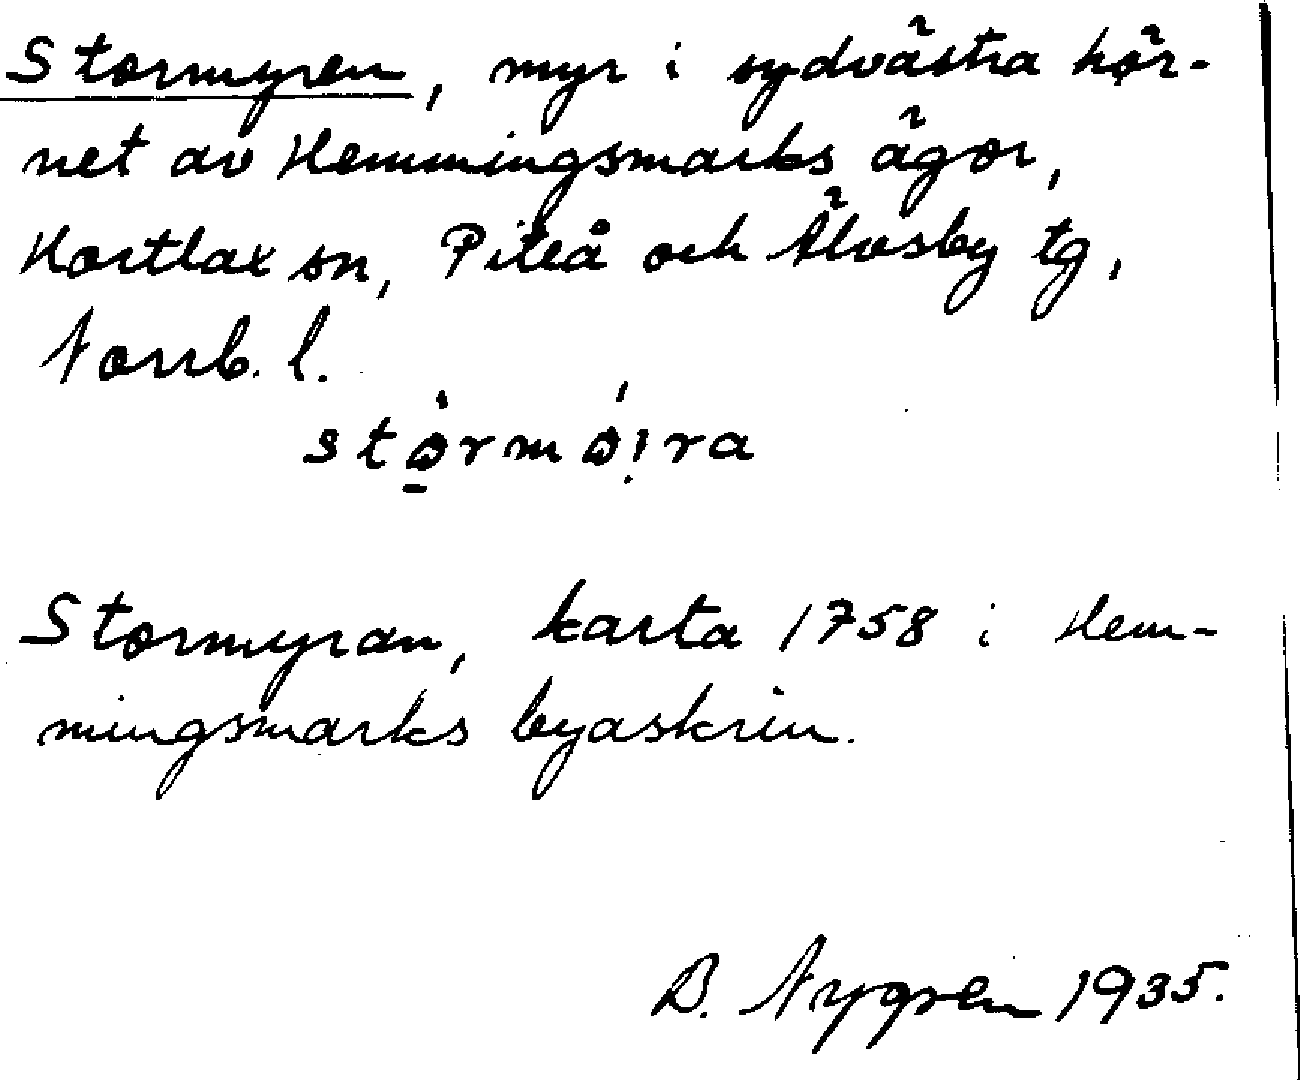 Stormyren, myr i sydvästra hör-
net av Hemmingsmarks ägor,
Hortlax sn, Piteå och Älvsby tg,
Norrb. l.
størmø̣ira
Stormyran, karta 1758 i Hem-
mingsmarks byaskrin.
B. Nygren 1935.